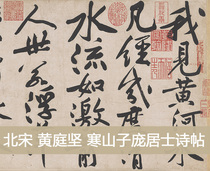 我見黃河水
凡經幾度
水流如激
人世若浮
北宋 黄庭坚 寒山子庞居士诗帖